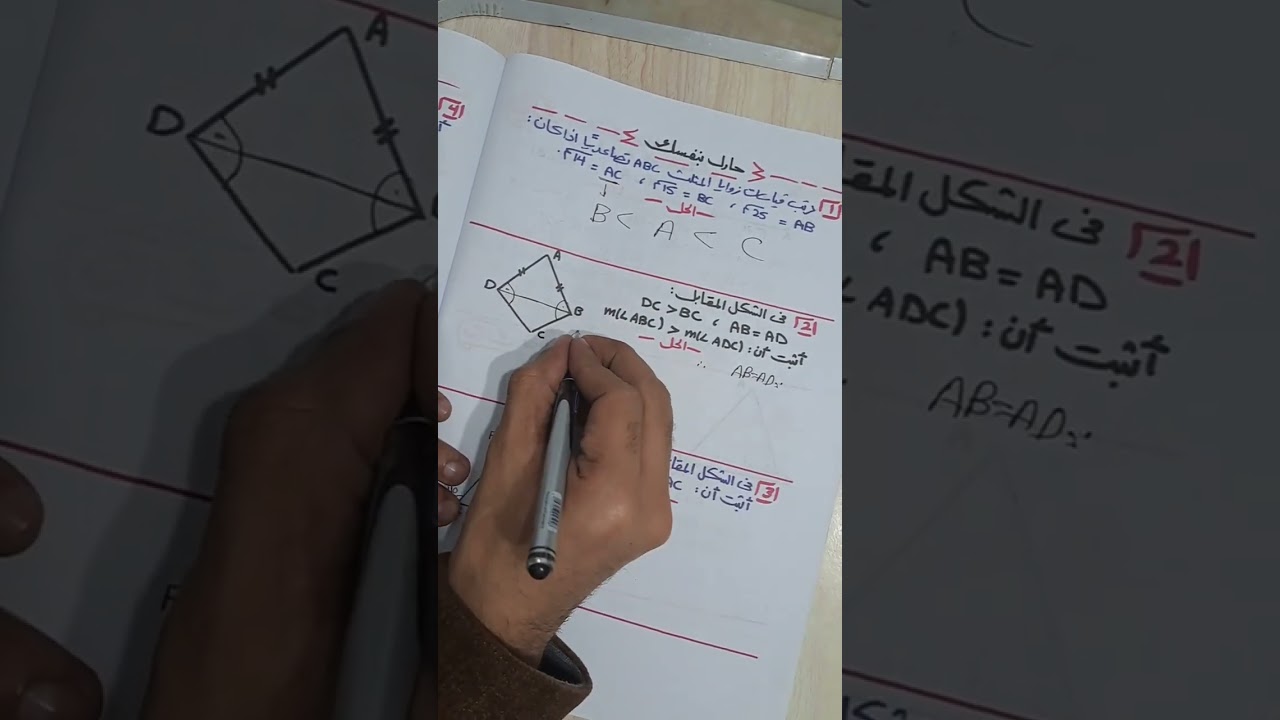 حاول بنفسك
1 رتب قياسات زوايا المثلث ABC تصاعدياً اذا كان:
AB = ٢٥م ، BC = ١٥م ، AC = ١٤م.
الحل
B < A < C
2 فى الشكل المقابل:
AB = AD ، DC > BC
أثبت أن: m(∠ABC) > m(∠ADC)
الحل
∵ AB = AD ∴
A
D
B
C
3 فى الشكل
أثبت أن:
4
2 فى الشكل
AB = AD ،
أثبت أن: ADC)
∵ AB = AD
A
D
C